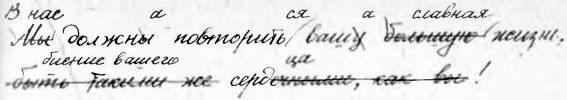 В нас а ся а славная
Мы должны повторить вашу большую жизнь,
биение вашего ца
быть такими же сердечными, как вы!